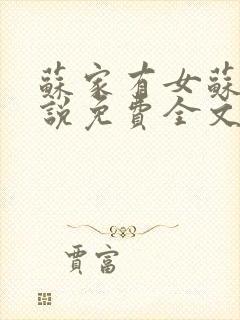 蘇家有女蘇
說免費全文
賈富